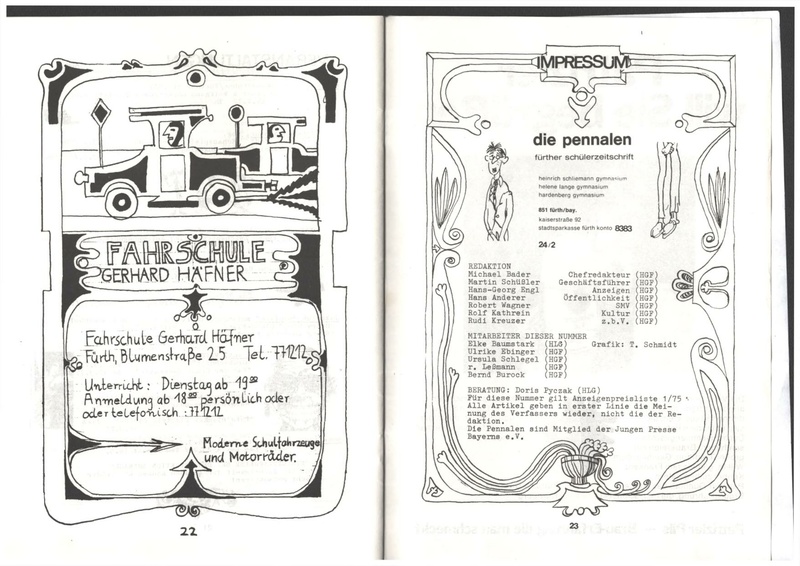 FAHRSCHULE
GERHARD HÄFNER
Fahrschule Gerhard Häfner
Fürth, Blumenstraße 25 Tel. 771212
Unterricht: Dienstag ab 19⁰⁰
Anmeldung ab 18⁰⁰ persönlich oder
oder telefonisch: 771212
Moderne Schulfahrzeuge
und Motorräder.
22
IMPRESSUM
die pennalen
fürther schülerzeitschrift
heinrich schliemann gymnasium
helene lange gymnasium
hardenberg gymnasium
851 fürth/bay.
kaiserstraße 92
stadtsparkasse fürth konto 8383
24/2
REDAKTION
Michael Bader Chefredakteur (HGF)
Martin Schüßler Geschäftsführer (HGF)
Hans-Georg Engl Anzeigen (HGF)
Hans Anderer Öffentlichkeit (HGF)
Robert Wagner SMV (HGF)
Rolf Kathrein Kultur (HGF)
Rudi Kreuzer z.b.V. (HGF)
MITARBEITER DIESER NUMMER
Elke Baumstark (HLG) Grafik: T. Schmidt
Ulrike Ebinger (HGF)
Ursula Schlegel (HGF)
r. Leßmann (HGF)
Bernd Burock (HGF)
BERATUNG: Doris Pyczak (HLG)
Für diese Nummer gilt Anzeigenpreisliste 1/75
Alle Artikel geben in erster Linie die Mei-
nung des Verfassers wieder, nicht die der Re-
daktion.
Die Pennalen sind Mitglied der Jungen Presse
Bayerns e.V.
23